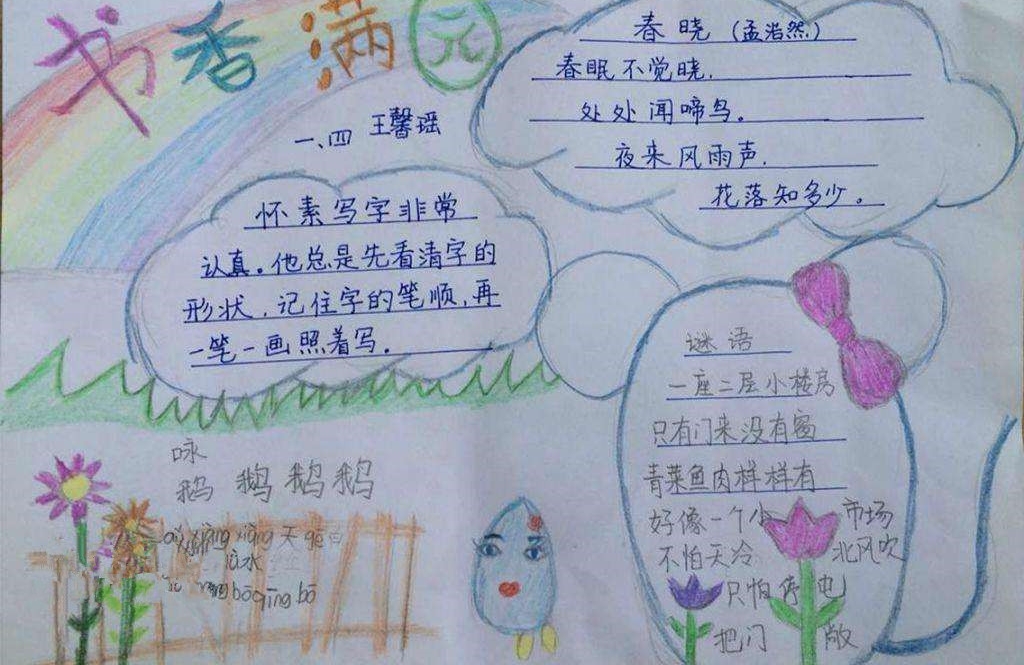 书香满园
一、四 王馨瑶
春晓（孟浩然）
春眠不觉晓.
处处闻啼鸟。
夜来风雨声.
花落知多少。
怀素写字非常
认真。他总是先看清字的
形状.记住字的笔顺,再
一笔一画照着写.
谜语
一座二层小楼房
只有门来没有窗
青菜鱼肉样样有
好像一个小 市场
不怕天冷 北风吹
只怕停电
把门 敞
咏
鹅 鹅鹅鹅
xiàng 天
水
bō qīng bō